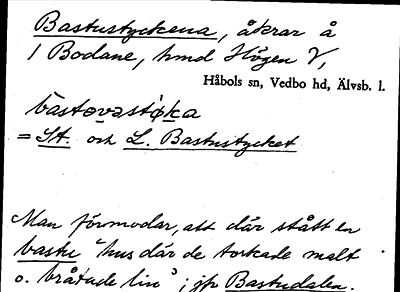 Bastustyckena, åkrar å
1 Bodane, hmd Högen V,
Håbols sn, Vedbo hd, Älvsb. l.
= St. och L. Bastustycket
Man förmodar, att där stått en
bastu "hus där de torkade malt
o. bråtade lin"; jfr Bastudalen.